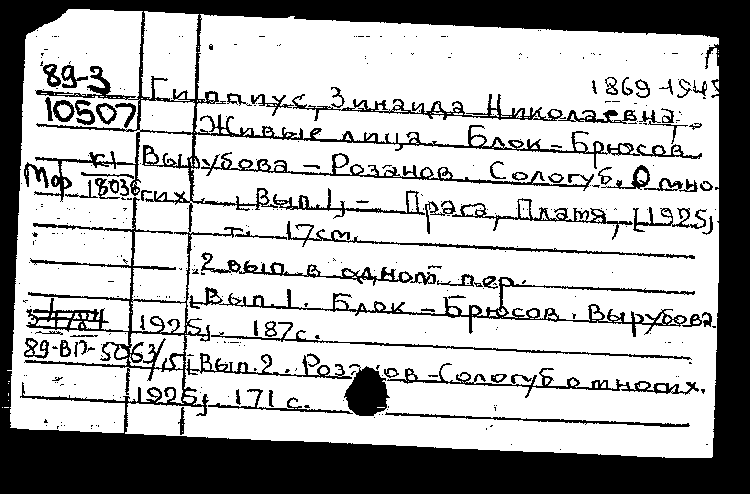 89-3
10507
1869-1945
Гиппиус, Зинаида Николаевна,
Живые лица. Блок - Брюсов
Вырубова - Розанов. Сологуб. О мно-
Мф К1
18036
гих. [Вып.1] - Прага, Пламя, [1925]
т. 17см.
2 вып в одном пер.
[Вып.1. Блок - Брюсов. Вырубова
1925]. 187с.
89-ВП-5063/15 [Вып.2. Розанов - Сологуб о многих.
1925]. 171 с.